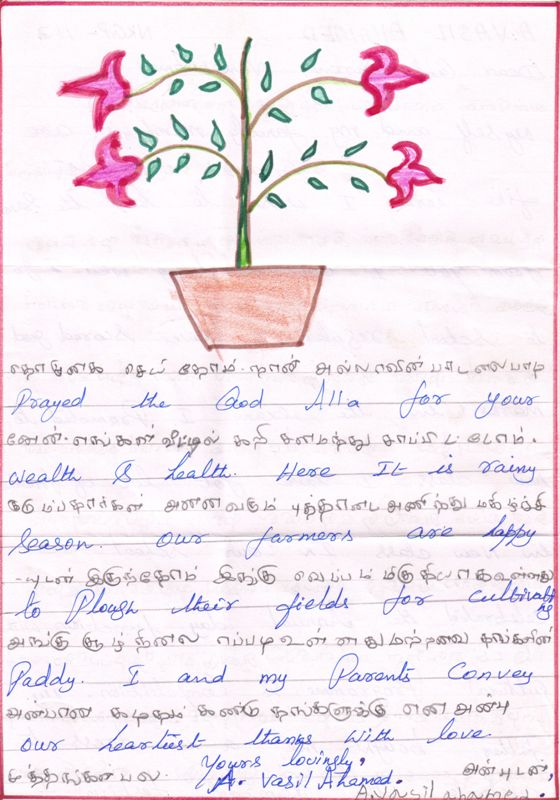 தொழுகை செய்தோம். நான் அல்லாவின் பாடலை பாடி
Prayed the God Alla for your
னேன். எங்கள் வீட்டில் கறி சமைத்து சாப்பிட்டோம்.
wealth & health. Here It is rainy
அனைவரும் புத்தாடை அணிந்து மகிழ்ச்சி
season. our farmers are happy
-யுடன் இருந்தோம் இங்கு வெப்பம் மிகுதியாக உள்ளது
to Plough their fields for cultivating
அங்கு சூழ்நிலை எப்படி உள்ளது மற்றவை தங்களின்
Paddy. I and my Parents Convey
அன்பான கடிதம் கண்டு தங்களுக்கு என் அன்பு
our heartiest thanks with love.
Yours lovingly,
முத்தங்கள் பல. அன்புடன்,
A. Vasil Ahamed.
A. Vasil Ahamed.